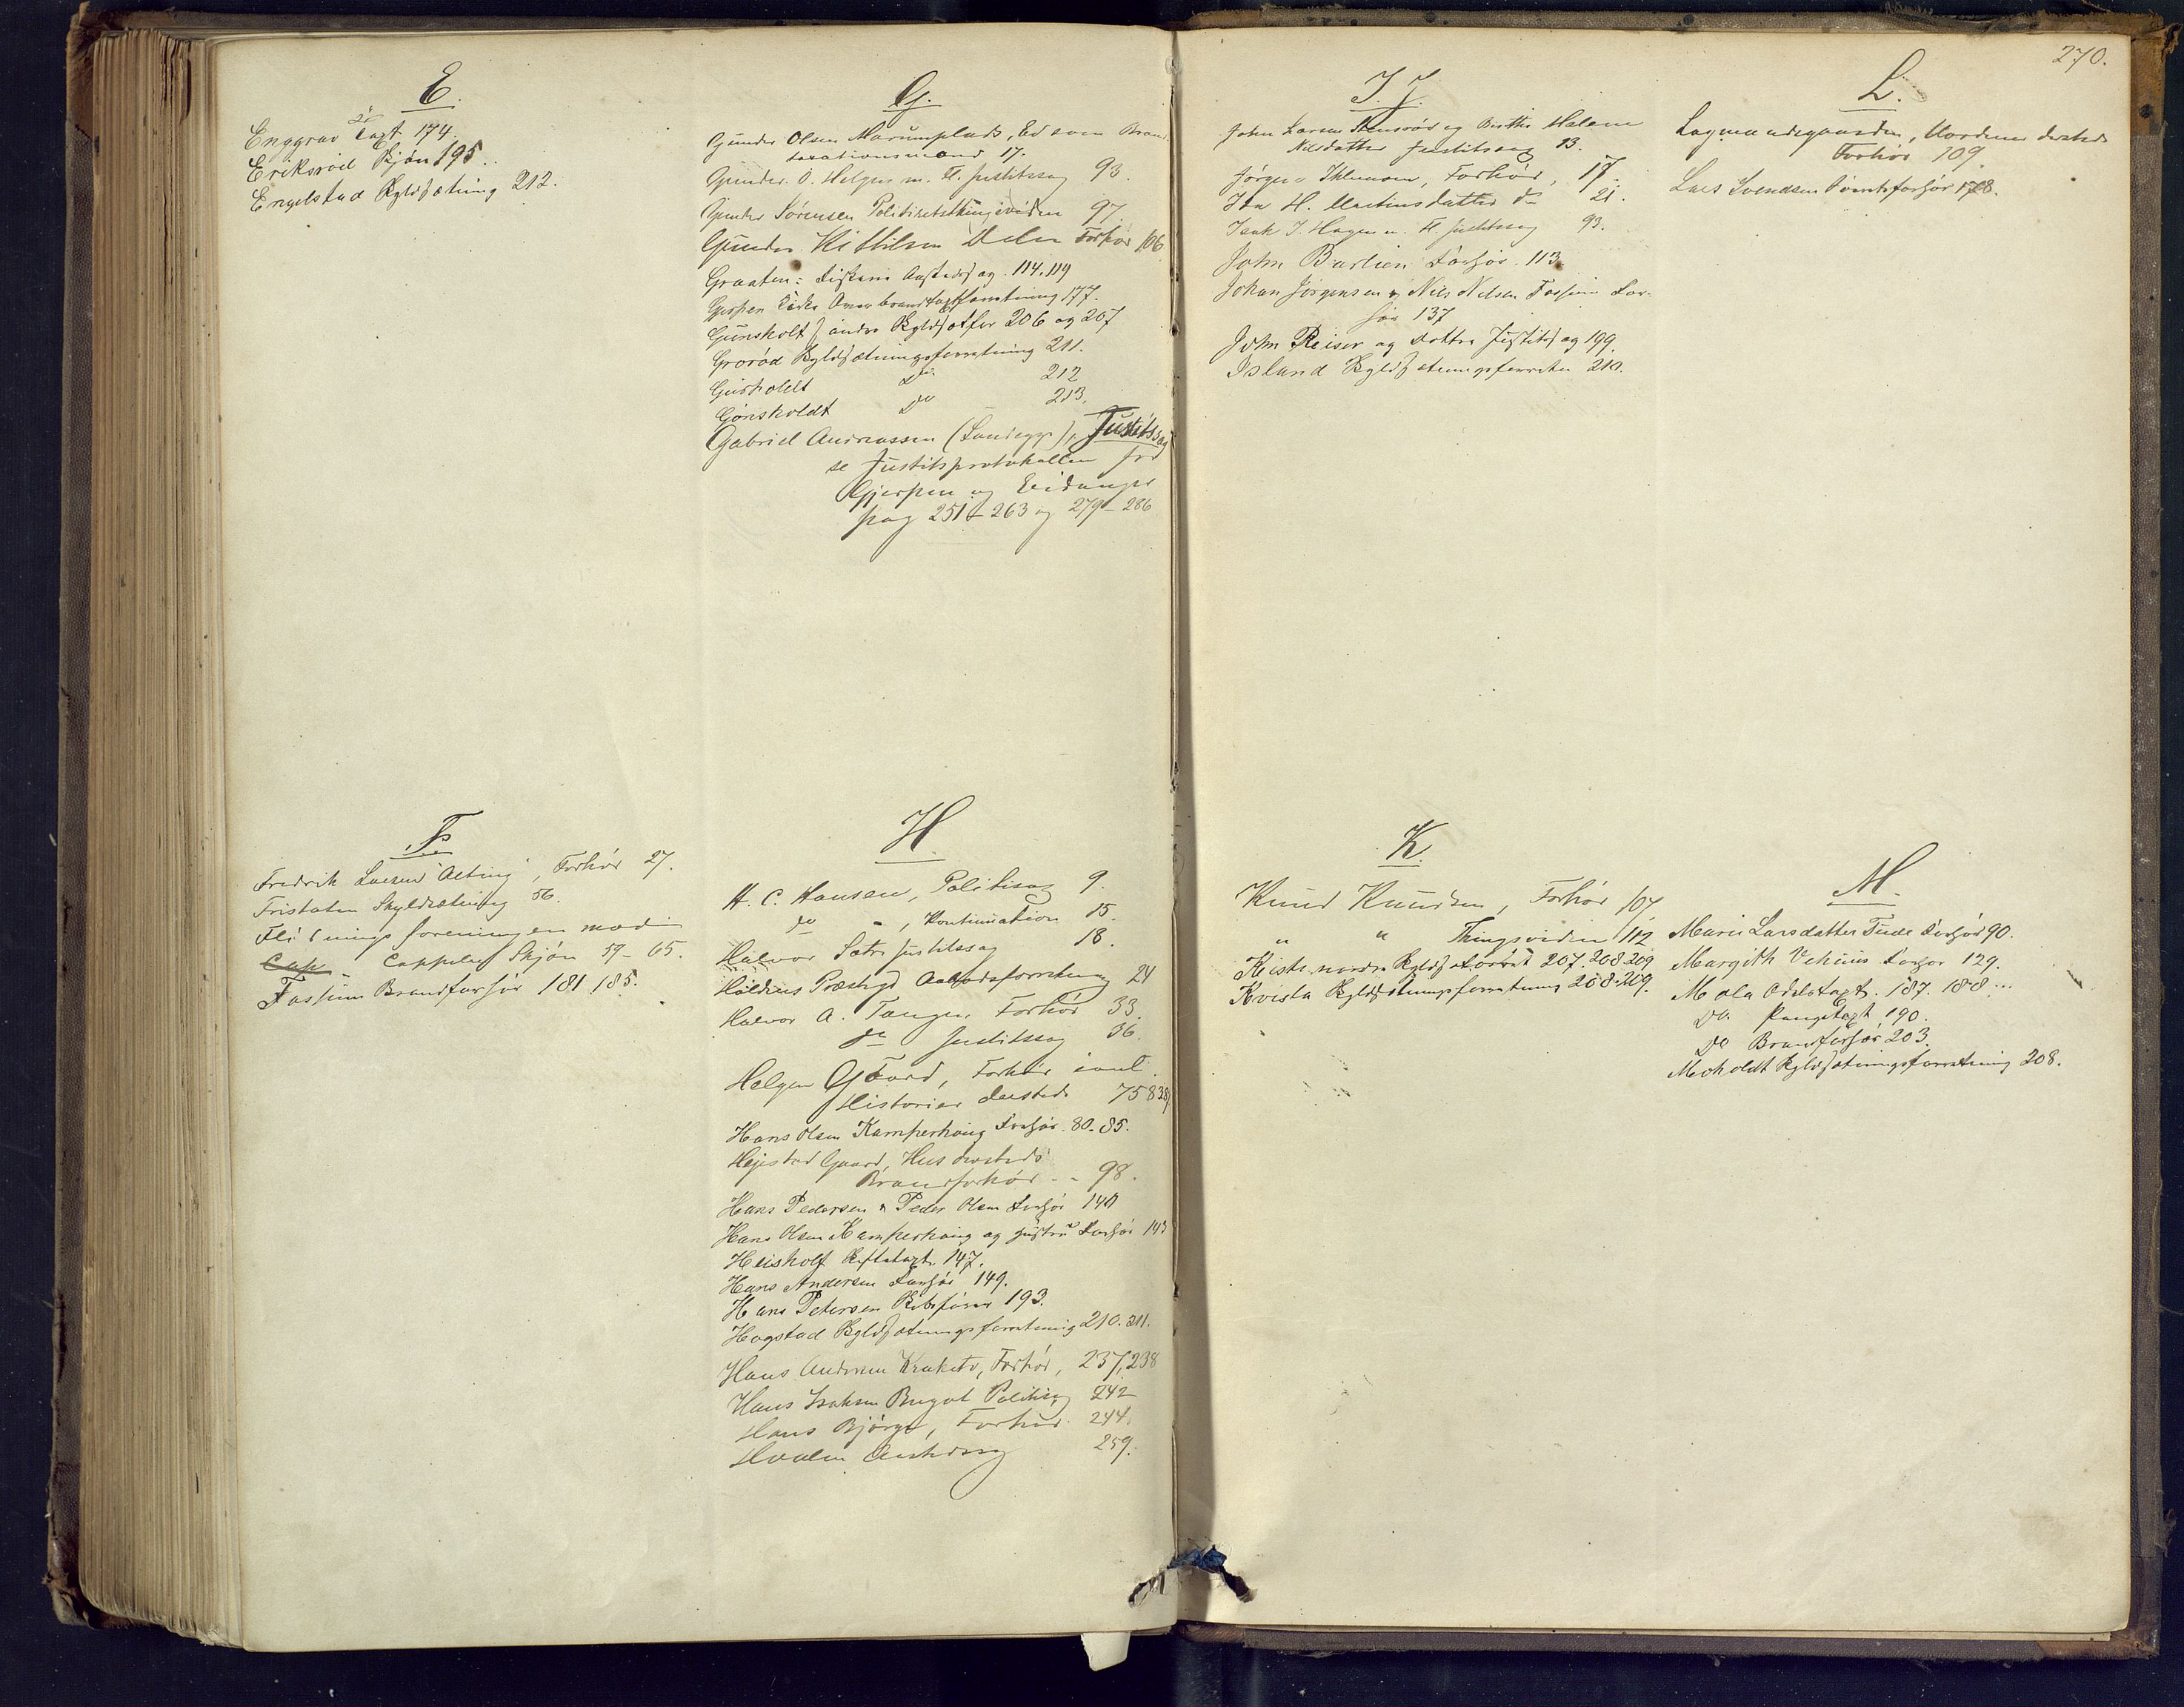 270.
E.
Enggrav Taxt. 174.
Eriksrød Skjøn 195.
Engelstad Skyldsætning 212.
F.
Fredrik Larsen Alting, Forhør 27.
Fristaten Skyldsætning 56.
Fløtningsforeningen mod
Cappelen Skjøn 59-65.
Fossum Brandforhør 181 185.
G.
Gunder Olsen Marumplads, Ed som Brand
taxationsmand 17.
Gunder O. Helgen m. Fl. Justitssag 93.
Gunder Sørensen Politiretsthingsvidne 97.
Gunder Kittilsen Forhør 106
Graaten: Aastedssag 114, 119
Gjerpen 177.
Gunsholt søndre Skyldsætfor 206 og 207
Grorød Skyldsætningsforretning 211.
Gusholdt Do 212
Gjønsholdt Do 213.
Gabriel Andreassen, Justitssag
se Justitsprotokollen for
Gjerpen og Eidanger
pag 251-263 og 279-286
H.
H. C. Hansen, Politisag 9.
do " , Kontinuation 15.
Halvor Justitssag 18.
Aastedsforretning 24
Halvor A. Tangen Forhør 33.
do Justitssag 36.
Helgen Gaard, Forhør
Historier dersteds 75
Hans Olsen Kamperhaug Forhør 80-85.
Hejestad Gaard, Hus dersteds
Brandforhør - - 98.
Hans Pedersen & Peder Olsen Forhør 140
Hans Olsen Kamperhaug og Hustru Forhør 143
147.
Hans Andersen Forhør 149.
Hans Petersen 193.
Hogstad Skyldsætningsforretning 210. 211.
Hans Andersen, Forhør, 237, 238
Hans Isaksen Politisag 242
Hans Bjørge, Forhør 244.
Aastedssag 259.
I. J.
John Larsen og Birthe Malene
Nilsdatter Justitssag 13.
Jørgen, Forhør, 17.
Ida H. Martinsdatter do 21.
Isak J. Hagen m. Fl Justitssag 93.
John Barlien Forhør 113
Johan Jørgensen & Nils Nilsen Fossum For-
hør 137
John Reiser og Datter Justitssag 199.
Island Skyldsætningsforretn 210.
K.
Knud Knudsen, Forhør 107
" " Thingsvidne 112
Kiste nordre 207. 208. 209
Kvista Skyldsætningsforretning 208-209.
L.
Lagmandsgaarden, Mordene dersteds
Forhør 109
Lars Svendsen 178.
M.
Maria Larsdatter Forhør 90.
Margith Forhør 129.
Mæla Odelstaxt. 187. 188...
Do Pantetaxt 190.
Do Brandforhør 203.
Moholdt Skyldsætningsforretning 208.